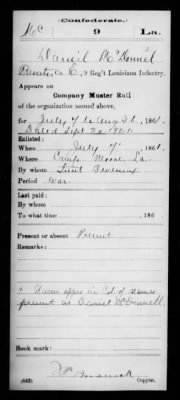 Confederate.
McC 9 La.
Daniel McDaniel
Private, Co. C, 9 Reg't Louisiana Infantry.
Appears on
Company Muster Roll
of the organization named above,
for July 7 to Aug 31, 1861.
Dated Sept 2, 1861.
Enlisted:
When July 7, 1861.
Where Camp Moore, La.
By whom Lieut
Period War
Last paid:
By whom
To what time , 186
Present or absent Present
Remarks:
* Name appears in Col. of names
present as Daniel McDonnell
Book mark:
(642) Copyist.